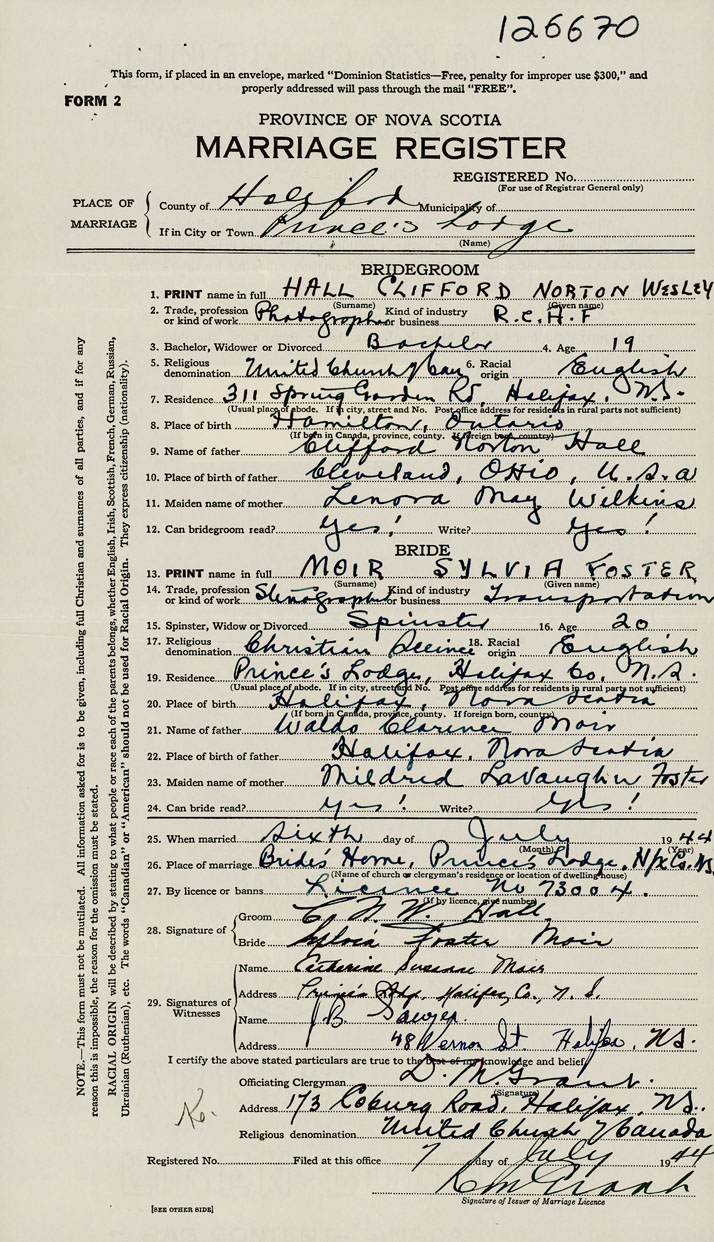 126670
This form, if placed in an envelope, marked "Dominion Statistics—Free, penalty for improper use $300," and
properly addressed will pass through the mail "FREE".
FORM 2
PROVINCE OF NOVA SCOTIA
MARRIAGE REGISTER
REGISTERED No.
(For use of Registrar General only)
PLACE OF MARRIAGE
County of Halifax Municipality of
If in City or Town Prince's Lodge
(Name)
BRIDEGROOM
1. PRINT name in full HALL CLIFFORD NORTON WESLEY
(Surname) (Given name)
2. Trade, profession or kind of work Photographer Kind of industry or business R.C.A.F
3. Bachelor, Widower or Divorced Bachelor 4. Age 19
5. Religious denomination United Church of Can 6. Racial origin English
7. Residence 311 Spring Garden Rd, Halifax, N.S.
(Usual place of abode. If in city, street and No. Post office address for residents in rural parts not sufficient)
8. Place of birth Hamilton, Ontario
(If born in Canada, province, county. If foreign born, country)
9. Name of father Clifford Norton Hall
10. Place of birth of father Cleveland, OHIO, U.S.A
11. Maiden name of mother Lenora May Wilkins
12. Can bridegroom read? Yes! Write? Yes!
BRIDE
13. PRINT name in full MOIR SYLVIA FOSTER
(Surname) (Given name)
14. Trade, profession or kind of work Stenographer Kind of industry or business Transportation
15. Spinster, Widow or Divorced Spinster 16. Age 20
17. Religious denomination Christian Science 18. Racial origin English
19. Residence Prince's Lodge, Halifax Co, N.S.
(Usual place of abode. If in city, street and No. Post office address for residents in rural parts not sufficient)
20. Place of birth Halifax, Nova Scotia
(If born in Canada, province, county. If foreign born, country)
21. Name of father Waldo Clarence Moir
22. Place of birth of father Halifax, Nova Scotia
23. Maiden name of mother Mildred LaVaughn Foster
24. Can bride read? Yes! Write? Yes!
25. When married Sixth day of July 1944
(Month) (Year)
26. Place of marriage Bride's Home, Prince's Lodge, Hfx Co. N.S.
(Name of church or clergyman's residence or location of dwelling house)
27. By licence or banns Licence No 73004.
(If by licence, give number)
28. Signature of
Groom C. N. W. Hall
Bride Sylvia Foster Moir
29. Signatures of Witnesses
Name Catherine Susanne Moir
Address Prince's Ldg, Halifax, Co., N. S.
Name J B Sawyer.
Address 48 Vernon St Halifax, N.S.
I certify the above stated particulars are true to the best of my knowledge and belief
Officiating Clergyman D. M. Grant.
(Signature)
Address 173 Coburg Road, Halifax, N.S.
Religious denomination United Church of Canada
Registered No. Filed at this office 7 day of July 1944
Signature of Issuer of Marriage Licence
[SEE OTHER SIDE]
NOTE.—This form must not be mutilated. All information asked for is to be given, including full Christian and surnames of all parties, and if for any
reason this is impossible, the reason for the omission must be stated.
RACIAL ORIGIN will be described by stating to what people or race each of the parents belongs, whether English, Irish, Scottish, French, German, Russian,
Ukrainian (Ruthenian), etc. The words "Canadian" or "American" should not be used for Racial Origin. They express citizenship (nationality).